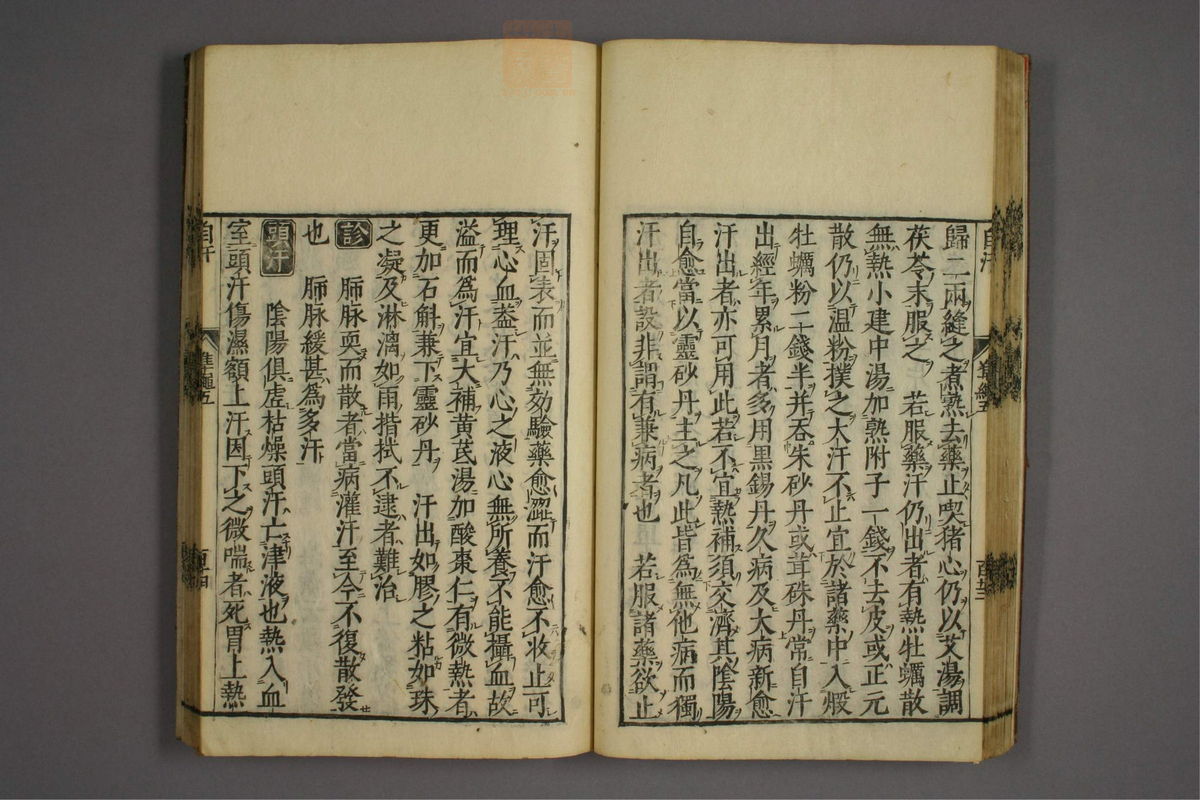 歸二兩縫之煮熟去藥止喫猪心仍以艾湯調
茯苓末服之　若服藥汗仍出者有熱牡蠣散
無熱小建中湯加熟附子一錢不去皮或正元
散仍以温粉撲之大汗不止宜於諸藥中入煅
牡蠣粉二錢半并吞朱砂丹或茸硃丹常自汗
出經年累月者多用黑錫丹久病及大病新愈
汗出者亦可用此若不宜熱補須交濟其陰陽
自愈當以靈砂丹主之凡此皆爲無他病而獨
汗出者設非謂有兼病者也　若服諸藥欲止
汗固表而並無効驗藥愈澀而汗愈不收止可
理心血葢汗乃心之液心無所養不能攝血故
溢而爲汗宜大補黄芪湯加酸棗仁有微熱者
更加石斛兼下靈砂丹　汗出如膠之粘如珠
之凝及淋漓如雨揩拭不逮者難治
診　肺脉耎而散者當病灌汗至今不復散發
也　肺脉緩甚爲多汗
頭汗　陰陽俱虗枯燥頭汗亡津液也熱入血
室頭汗傷濕額上汗因下之微喘者死胃上熱
自汗
準繩五